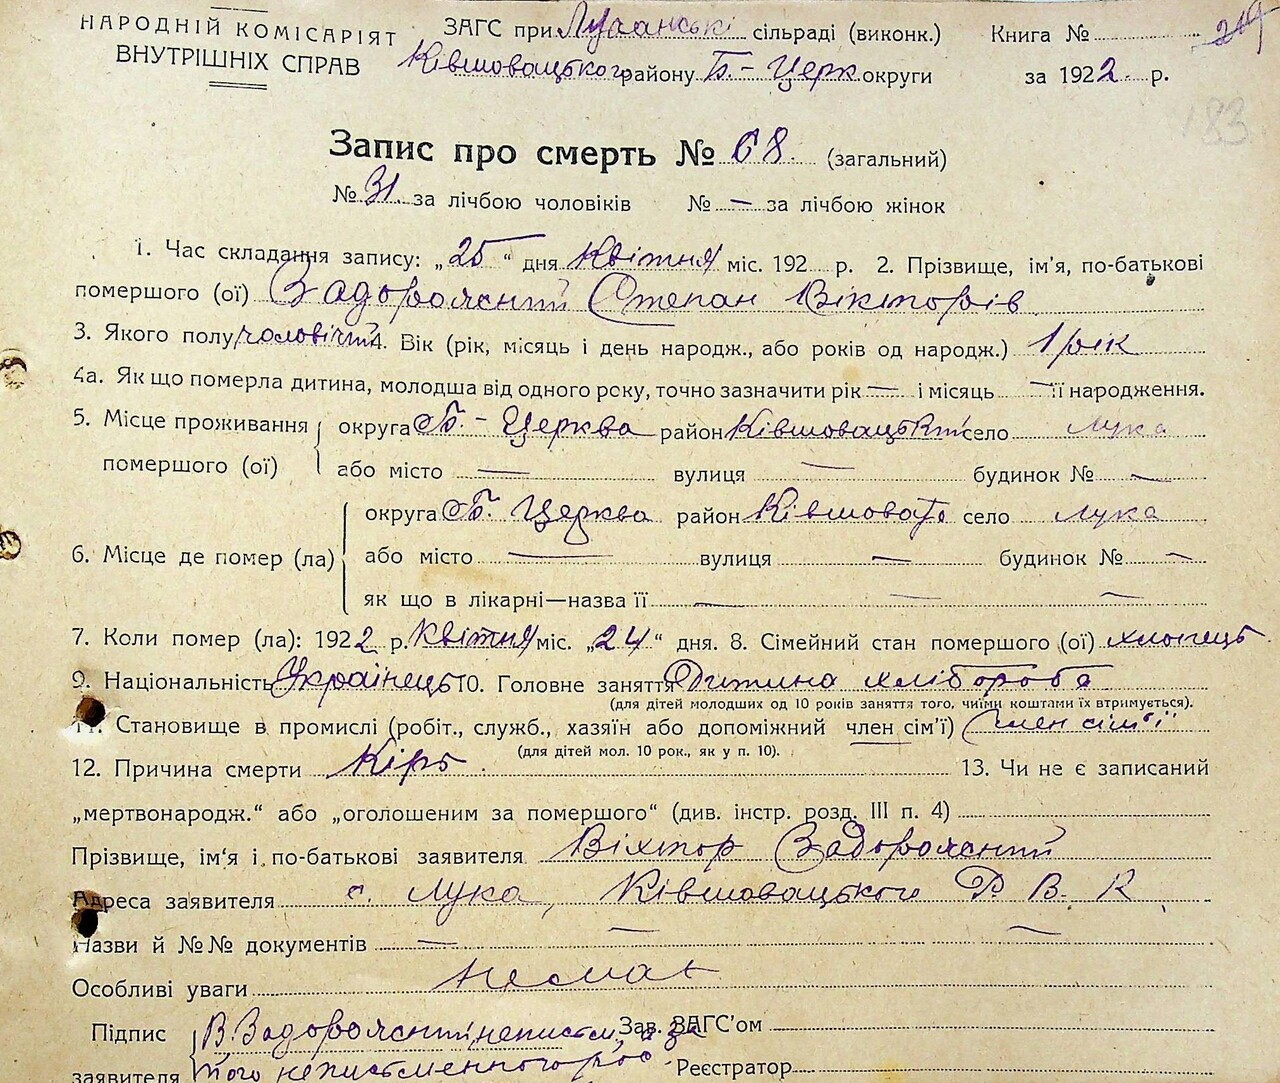 НАРОДНІЙ КОМІСАРІЯТ
ВНУТРІШНІХ СПРАВ
ЗАГС при Лучанські сільраді (виконк.)
Ківшовацького району Б.-Церк округи
Книга №
за 1922 р.
183
Запис про смерть № 68. (загальний)
№ 31. за лічбою чоловіків № — за лічбою жінок
1. Час складання запису: „25“ дня Квітня міс. 192 р. 2. Прізвище, ім'я, по-батькові
помершого (ої) Задорожний Степан Вікторів
3. Якого полу чоловічий 4. Вік (рік, місяць і день народж., або років од народж.) 1 рік
4а. Як що померла дитина, молодша від одного року, точно зазначити рік — і місяць — її народження.
5. Місце проживання округа Б.-Церква район Ківшовацький село Лука
помершого (ої) або місто — вулиця — будинок № —
округа Б. Церква район Ківшоват село Лука
6. Місце де помер (ла) або місто — вулиця — будинок № —
як що в лікарні—назва її — — —
7. Коли помер (ла): 1922 р. Квітня міс. „24“ дня. 8. Сімейний стан помершого (ої) хлопець
9. Національність Українець 10. Головне заняття Дитина хлібороба
(для дітей молодших од 10 років заняття того, чиїми коштами їх втримується).
11. Становище в промислі (робіт., служб., хазяїн або допоміжний член сім'ї) член сім'ї
(для дітей мол. 10 рок., як у п. 10).
12. Причина смерти Кір 13. Чи не є записаний
„мертвонародж.“ або „оголошеним за помершого“ (див. інстр. розд. III п. 4)
Прізвище, ім'я і по-батькові заявителя Віктор Задорожний
Адреса заявителя с. Лука, Ківшовацького Р. В. К
Назви й №№ документів — — —
Особливі уваги немає
Підпис В. Задорожний неписьм, а за Зав. ЗАГС'ом
заявителя його неписьменного Реєстратор